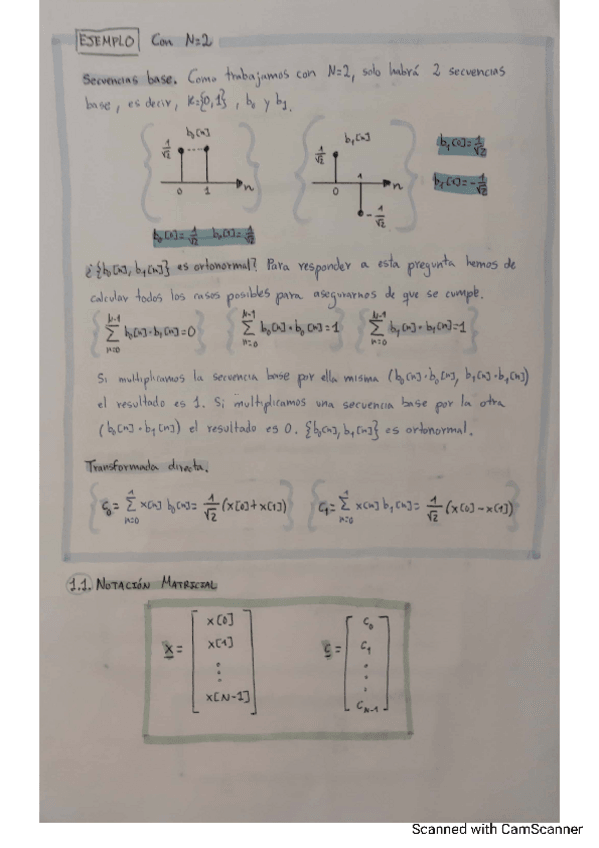 EJEMPLO Con N=2
Secuencias base. Como trabajamos con N=2, solo habrá 2 secuencias
base, es decir, K={0,1}, b₀ y b₁.
b₀[n]
1/√2
0 1 n
b₁[n]
1/√2
0 1 n
-1/√2
b₁[0]=1/√2
b₁[1]=-1/√2
b₀[0]=1/√2 b₀[1]=1/√2
¿{b₀[n], b₁[n]} es ortonormal? Para responder a esta pregunta hemos de
calcular todos los casos posibles para asegurarnos de que se cumple.
{∑_{n=0}^{N-1} b₀[n]·b₁[n]=0} {∑_{n=0}^{N-1} b₀[n]·b₀[n]=1} {∑_{n=0}^{N-1} b₁[n]·b₁[n]=1}
Si multiplicamos la secuencia base por ella misma (b₀[n]·b₀[n], b₁[n]·b₁[n])
el resultado es 1. Si multiplicamos una secuencia base por la otra
(b₀[n]·b₁[n]) el resultado es 0. {b₀[n], b₁[n]} es ortonormal.
Transformada directa.
{c₀=∑_{n=0}^{1} x[n] b₀[n]=1/√2 (x[0]+x[1])} {c₁=∑_{n=0}^{1} x[n] b₁[n]=1/√2 (x[0]-x[1])}
1.1. NOTACIÓN MATRICIAL
x = [x[0] x[1] ⋮ x[N-1]]
c = [c₀ c₁ ⋮ c_{N-1}]
Scanned with CamScanner